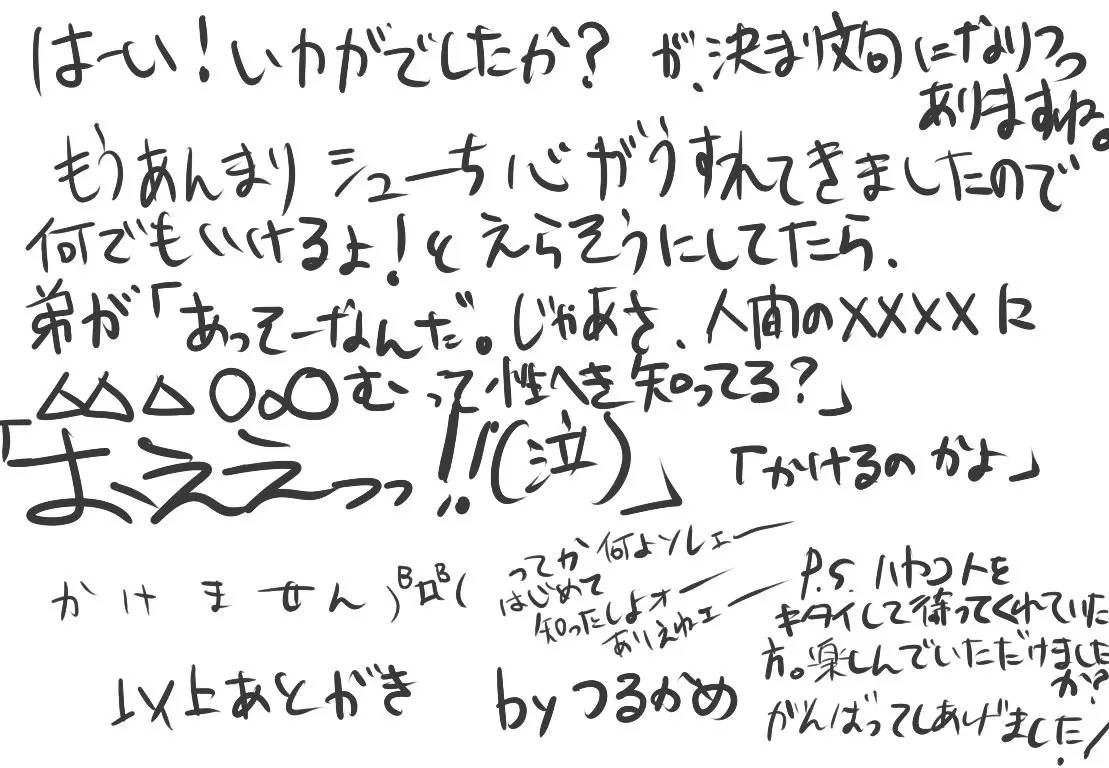 はーい！いかがでしたか？ が、決まり文句になりつつ
ありますね。
もうあんまりシューち心がうすれてきましたので
何でもいけるよ！とえらそうにしてたら、
弟が「あってーなんだ。じゃあさ、人間のXXXXに
△△△〇〇〇むって性へき知ってる？」
「おええーっっ!!(泣)」 「かけるのかよ」
かけません
ってか何よソレェー
はじめて
知ったしよォー
ありえねェー
P.S. ハヤコトを
キタイして待ってくれていた
方。楽しんでいただけました
か？
がんばってしあげました！
以上あとがき byつるかめ